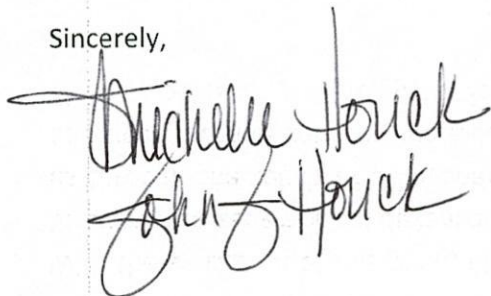 Sincerely,
Michelle Houck
John J Houck